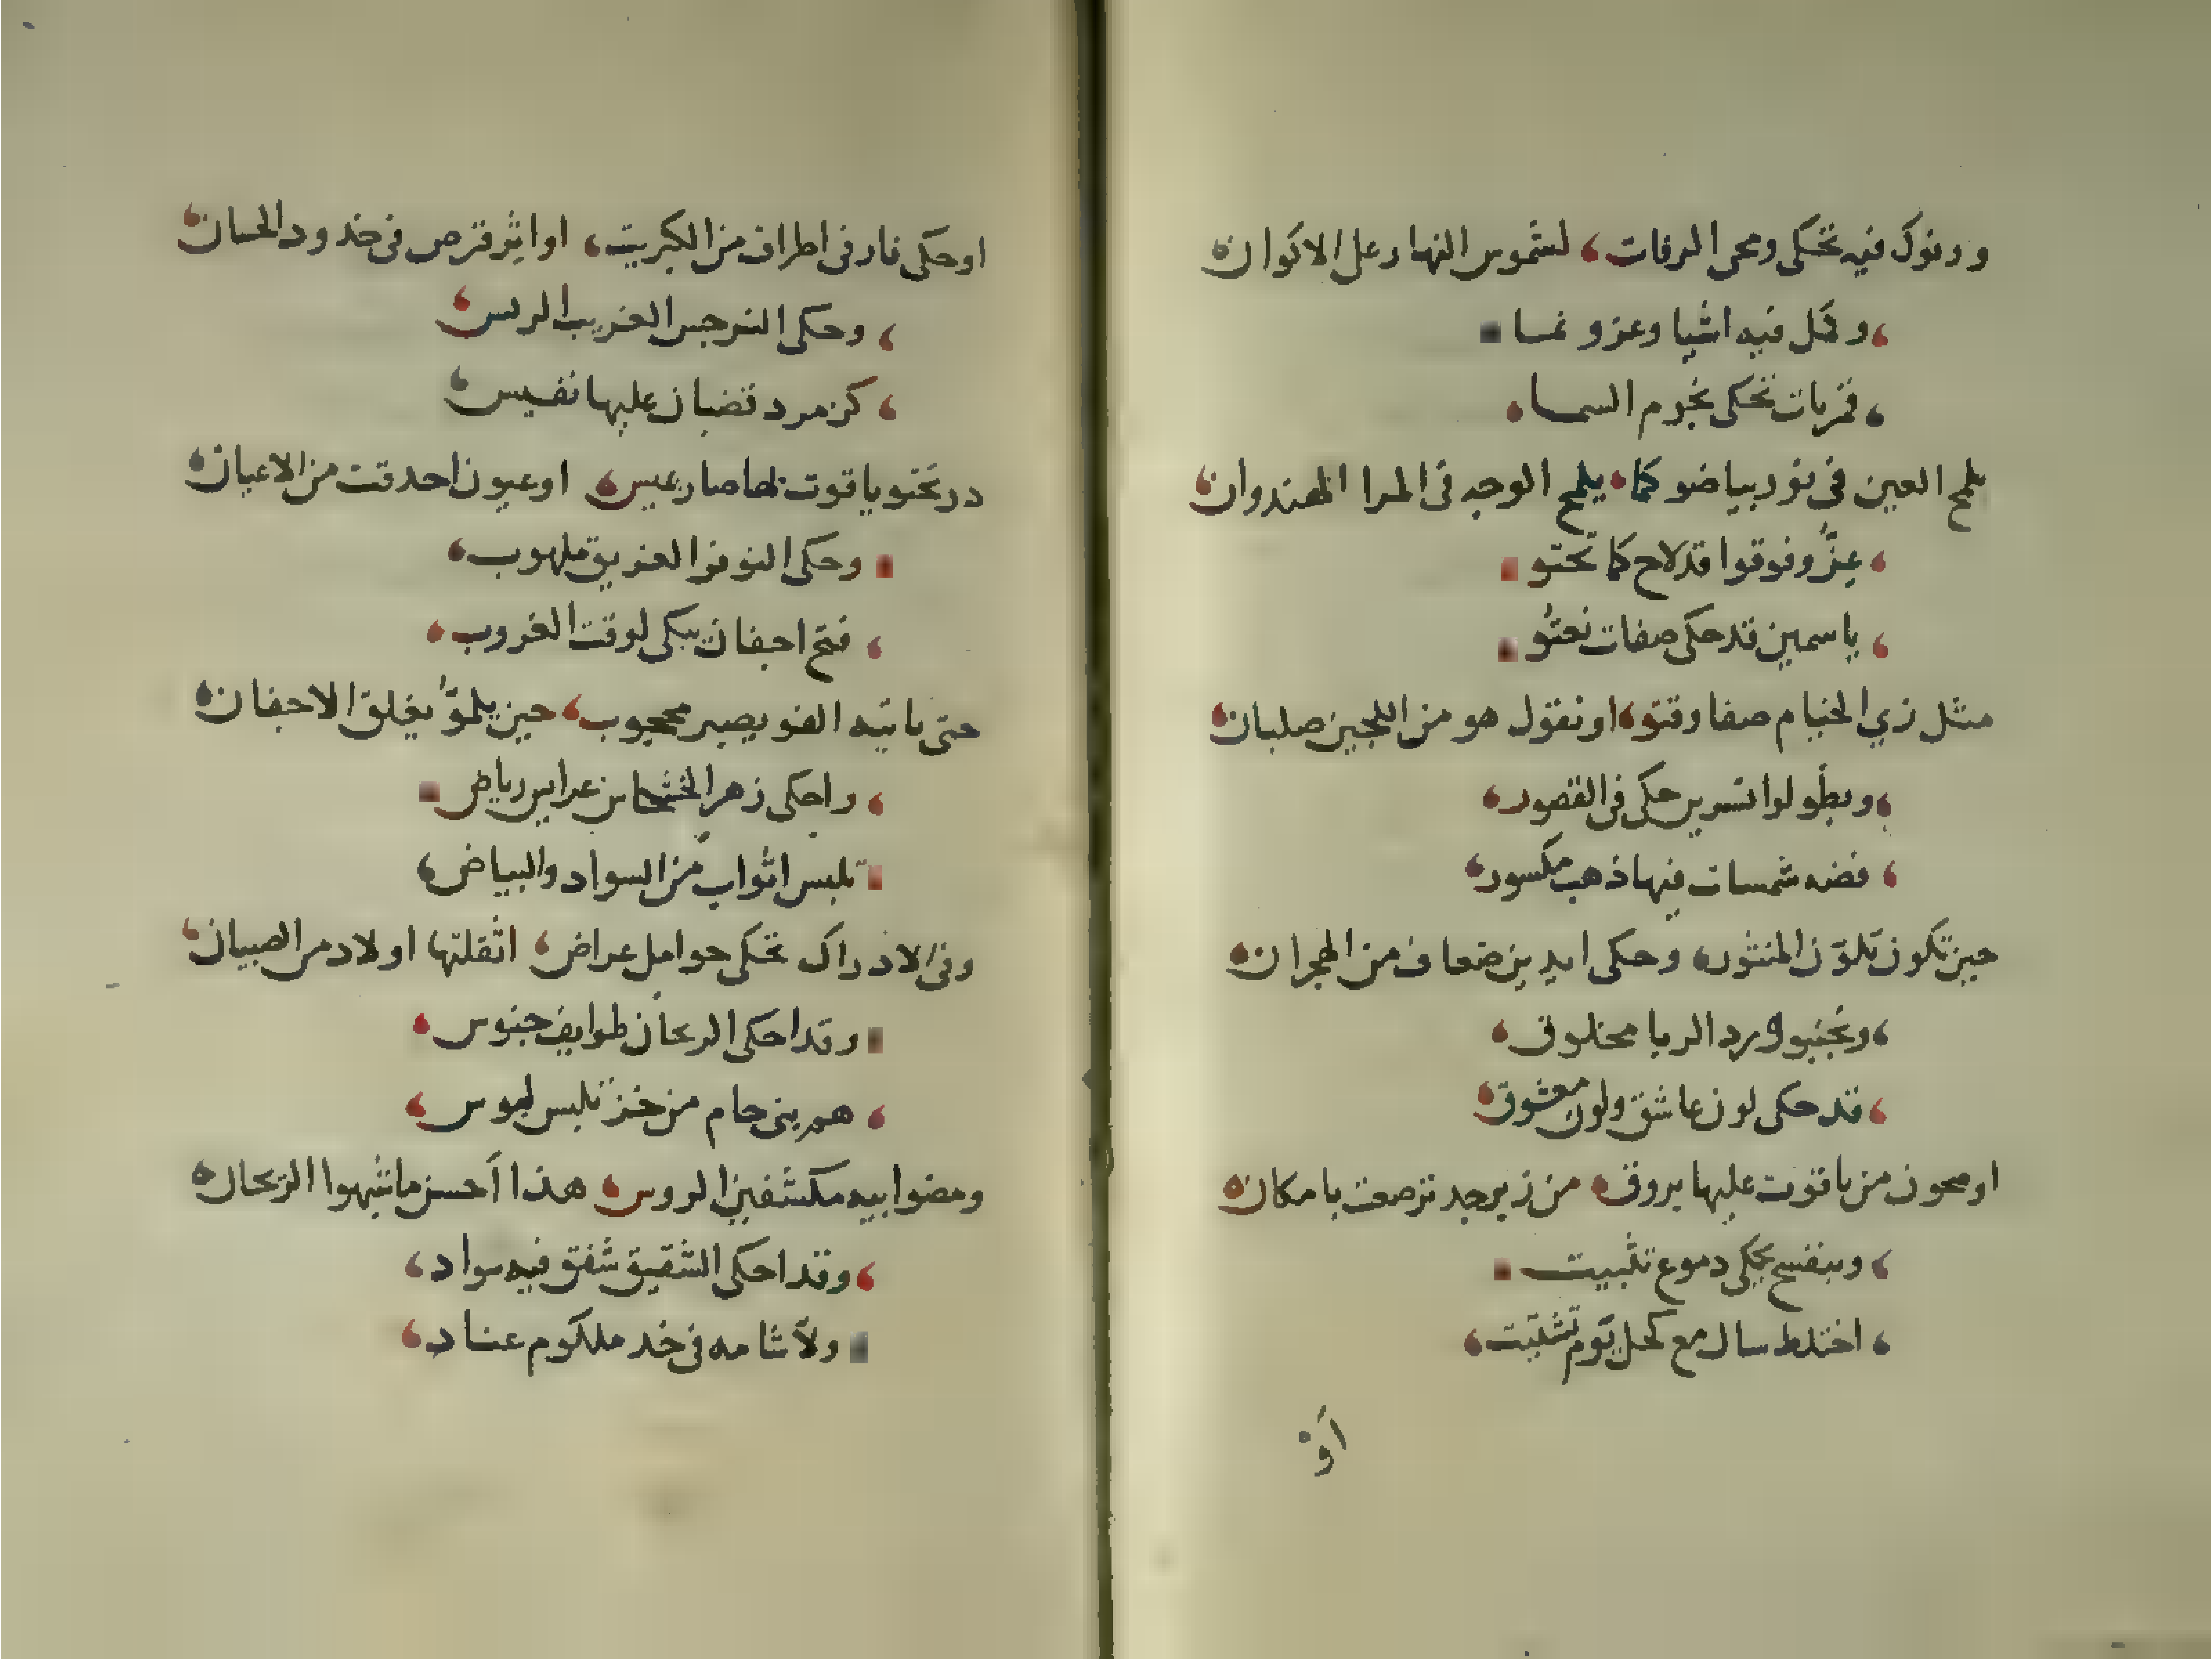 ورنوك فيه تحكي ومحى الرفات، لشموس النهار على الاكوان
وكل فيه اشيا وعزو نمسا
قمريات تحكي نجوم السما
يلمح العين في نور بياضو كما يلمح الوجه في المرا الهندوان
عز وفوقوا قد لاح كما تحتو
ياسمين قد حكى صفات نعتو
مثل زي الخيام صفا وقتو او نقول هو من اللجين صلبان
وبطولوا نسرين حكى في القصور
فضه شمسات فيها ذهب مكسور
حين تكون تلون المنثور وحكى ايدين ضعاف من الهجران
وبجنبو ورد الربا مخلوق
قد حكى لون عاشق ولون معشوق
او صحون من ياقوت عليها بروق من زبرجد ترصعت بامكان
وبنفسج يحكي دموع تثبيت
اختلط سال مع كحل يوم تشتيت
اَوْ
او حكى نار في اطراف من الكبريت، او اثر قرص في خدود الحسان
وحكى النرجس الغريب الريس
كزمرد قضبان عليها نفيس
در تحتو ياقوت لها صار عيس او عيون احدقت من الاعيان
وحكى النوفر الغريق ملهوب
فتح اجفان يبكي لوقت الغروب
حتى ياتيه الضو يصير محجوب حين يلمو يغلق الاجفان
واحكى زهر الخشخاش عرايس رياض
تلبس اثواب من السواد والبياض
وفي الادراك تحكي حوامل عراض، اثقلتها اولاد من الصبيان
وقد احكى الريحان طوايف جنوس
هم بني حام من خز تلبس لبوس
ومضوا بيه مكشفين الروس هذا احسن ما شبهوا الريحان
وقد احكى الشقيق شفق فيه سواد
ولا شامه في خد ملكوم عناد